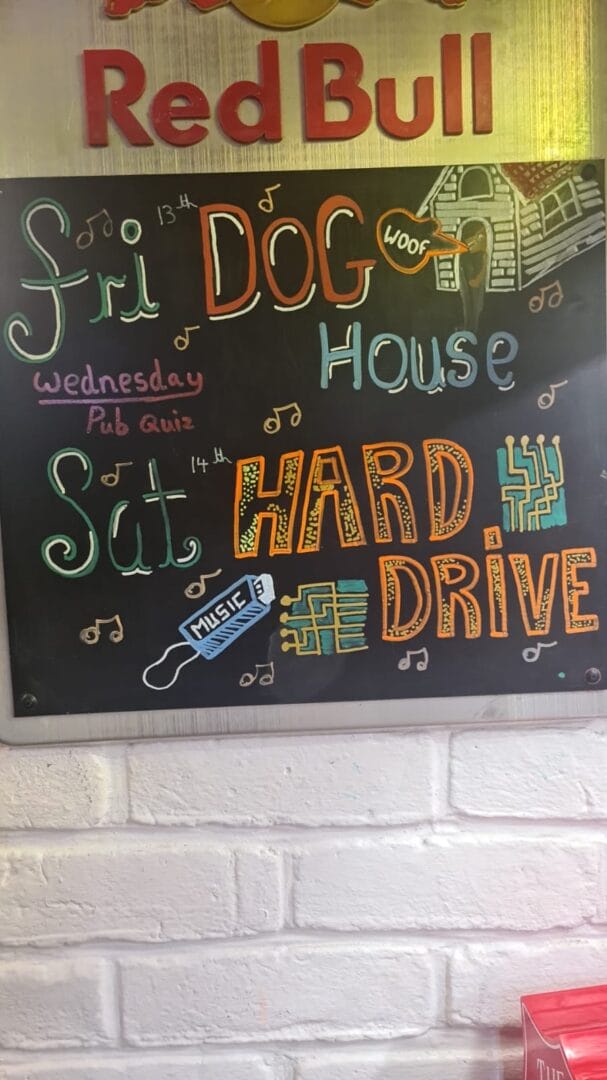 Red Bull
Fri 13th DOG
WOOF
House
Wednesday
Pub Quiz
Sat 14th HARD
DRiVE
MUSIC
THE